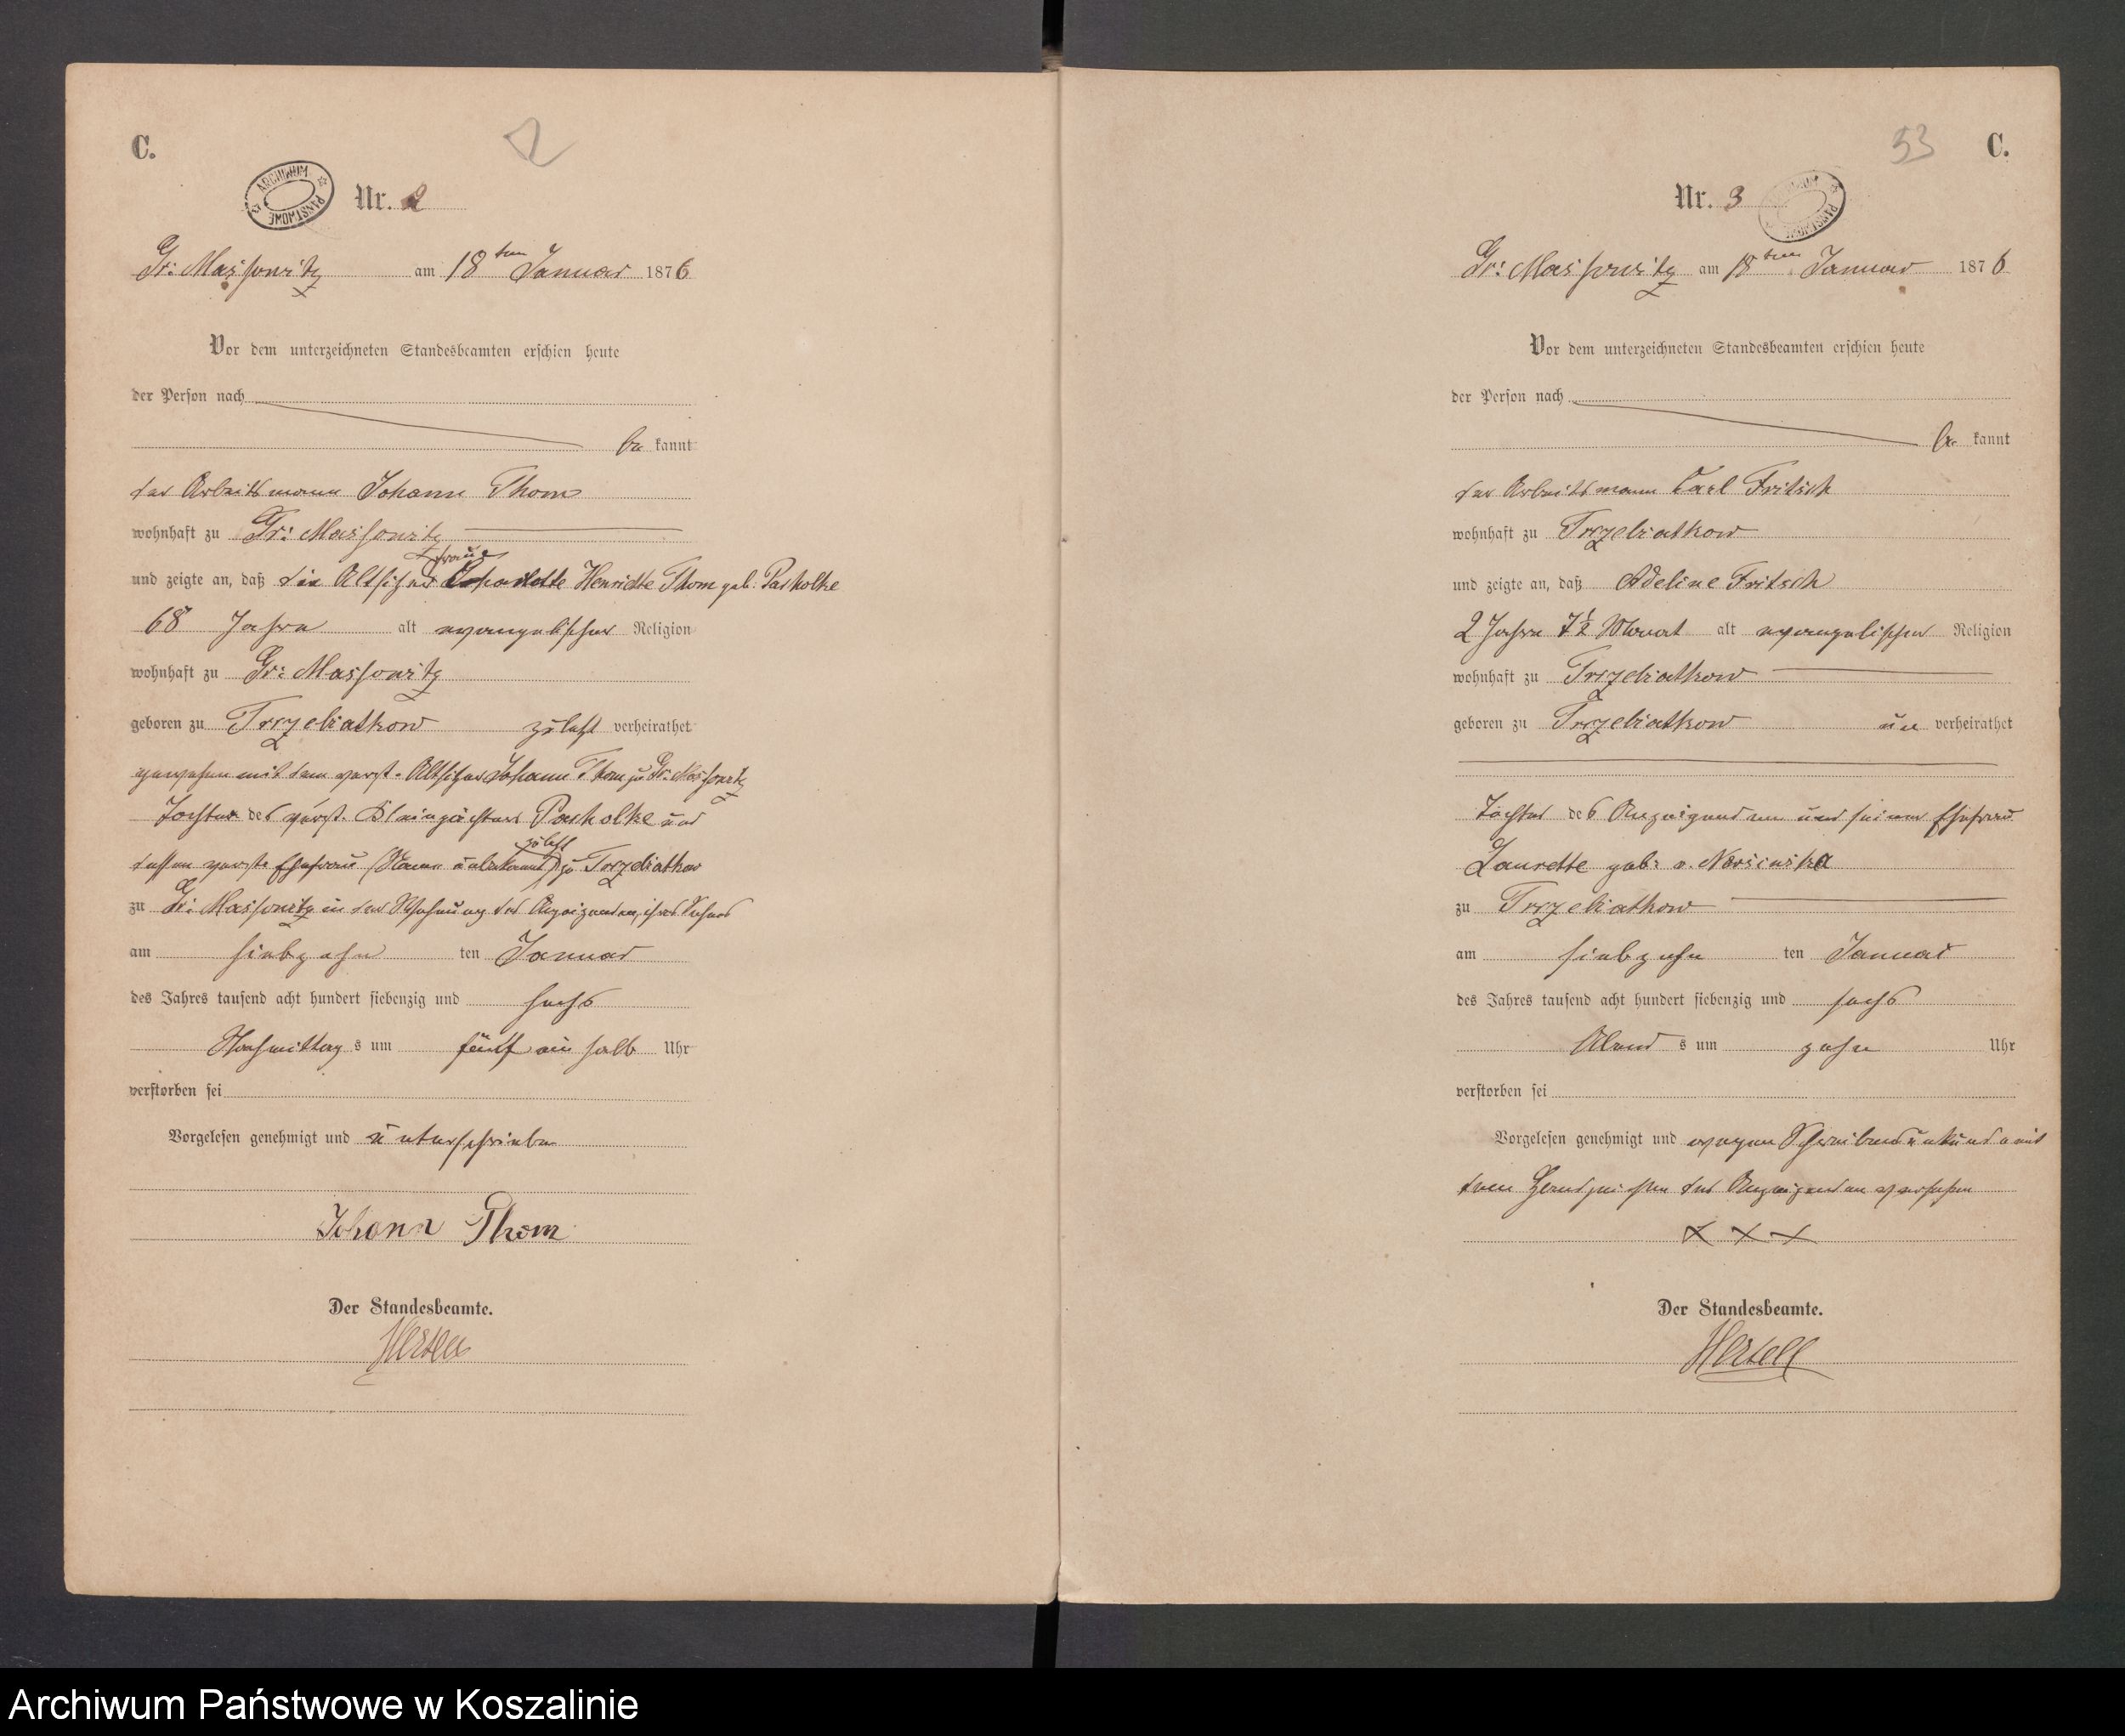 C.
2
ARCHIWUM PAŃSTWOWE
Nr. 2
Gr: Massowitz am 18ten Januar 1876
Vor dem unterzeichneten Standesbeamten erschien heute
der Person nach
be kannt
der Arbeitsmann Johann Thom
wohnhaft zu Gr: Massowitz
frau
und zeigte an, daß die Altsitzer Charlotte Henriette Thom geb. Pasholke
68 Jahre alt evangelischer Religion
wohnhaft zu Gr: Massowitz
geboren zu Trzebiatkow zuletzt verheirathet
gewesen mit dem verst. Altsitzer Johann Thom zu Gr. Massowitz
Tochter des verst. Kleinpächters Pasholke und
zuletzt
dessen verst. Ehefrau (Name unbekannt) zu Trzebiatkow
zu Gr: Massowitz in der Wohnung des Anzeigenden, ihres Sohnes
am siebzehn ten Januar
des Jahres tausend acht hundert siebenzig und sechs
Nachmittag s um fünf ein halb Uhr
verstorben sei
Vorgelesen genehmigt und unterschrieben
Johann Thom
Der Standesbeamte.
Hertell
53
C.
Nr. 3
Gr: Massowitz am 18ten Januar 1876
Vor dem unterzeichneten Standesbeamten erschien heute
der Person nach
be kannt
der Arbeitsmann Carl Fritsch
wohnhaft zu Trzebiatkow
und zeigte an, daß Adeline Fritsch
2 Jahre 7½ Monat alt evangelischer Religion
wohnhaft zu Trzebiatkow
geboren zu Trzebiatkow un verheirathet
Tochter des Anzeigenden und seiner Ehefrau
Laurette geb: v.
zu Trzebiatkow
am siebzehn ten Januar
des Jahres tausend acht hundert siebenzig und sechs
Abend s um zehn Uhr
verstorben sei
Vorgelesen genehmigt und wegen Schreibensunkunde mit
den Handzeichen des Anzeigenden versehen
X X X
Der Standesbeamte.
Hertell
Archiwum Państwowe w Koszalinie